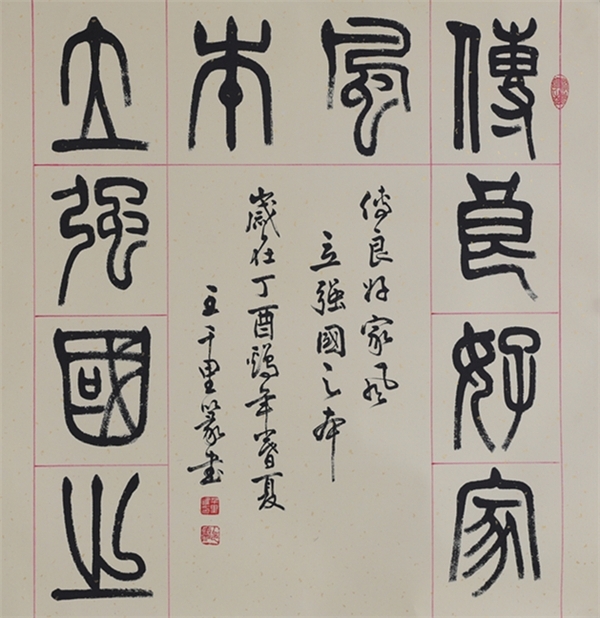 傳良好家
風
立強國之
本
傳良好家風
立强國之本
歲在丁酉鷄年夏
王千里篆書